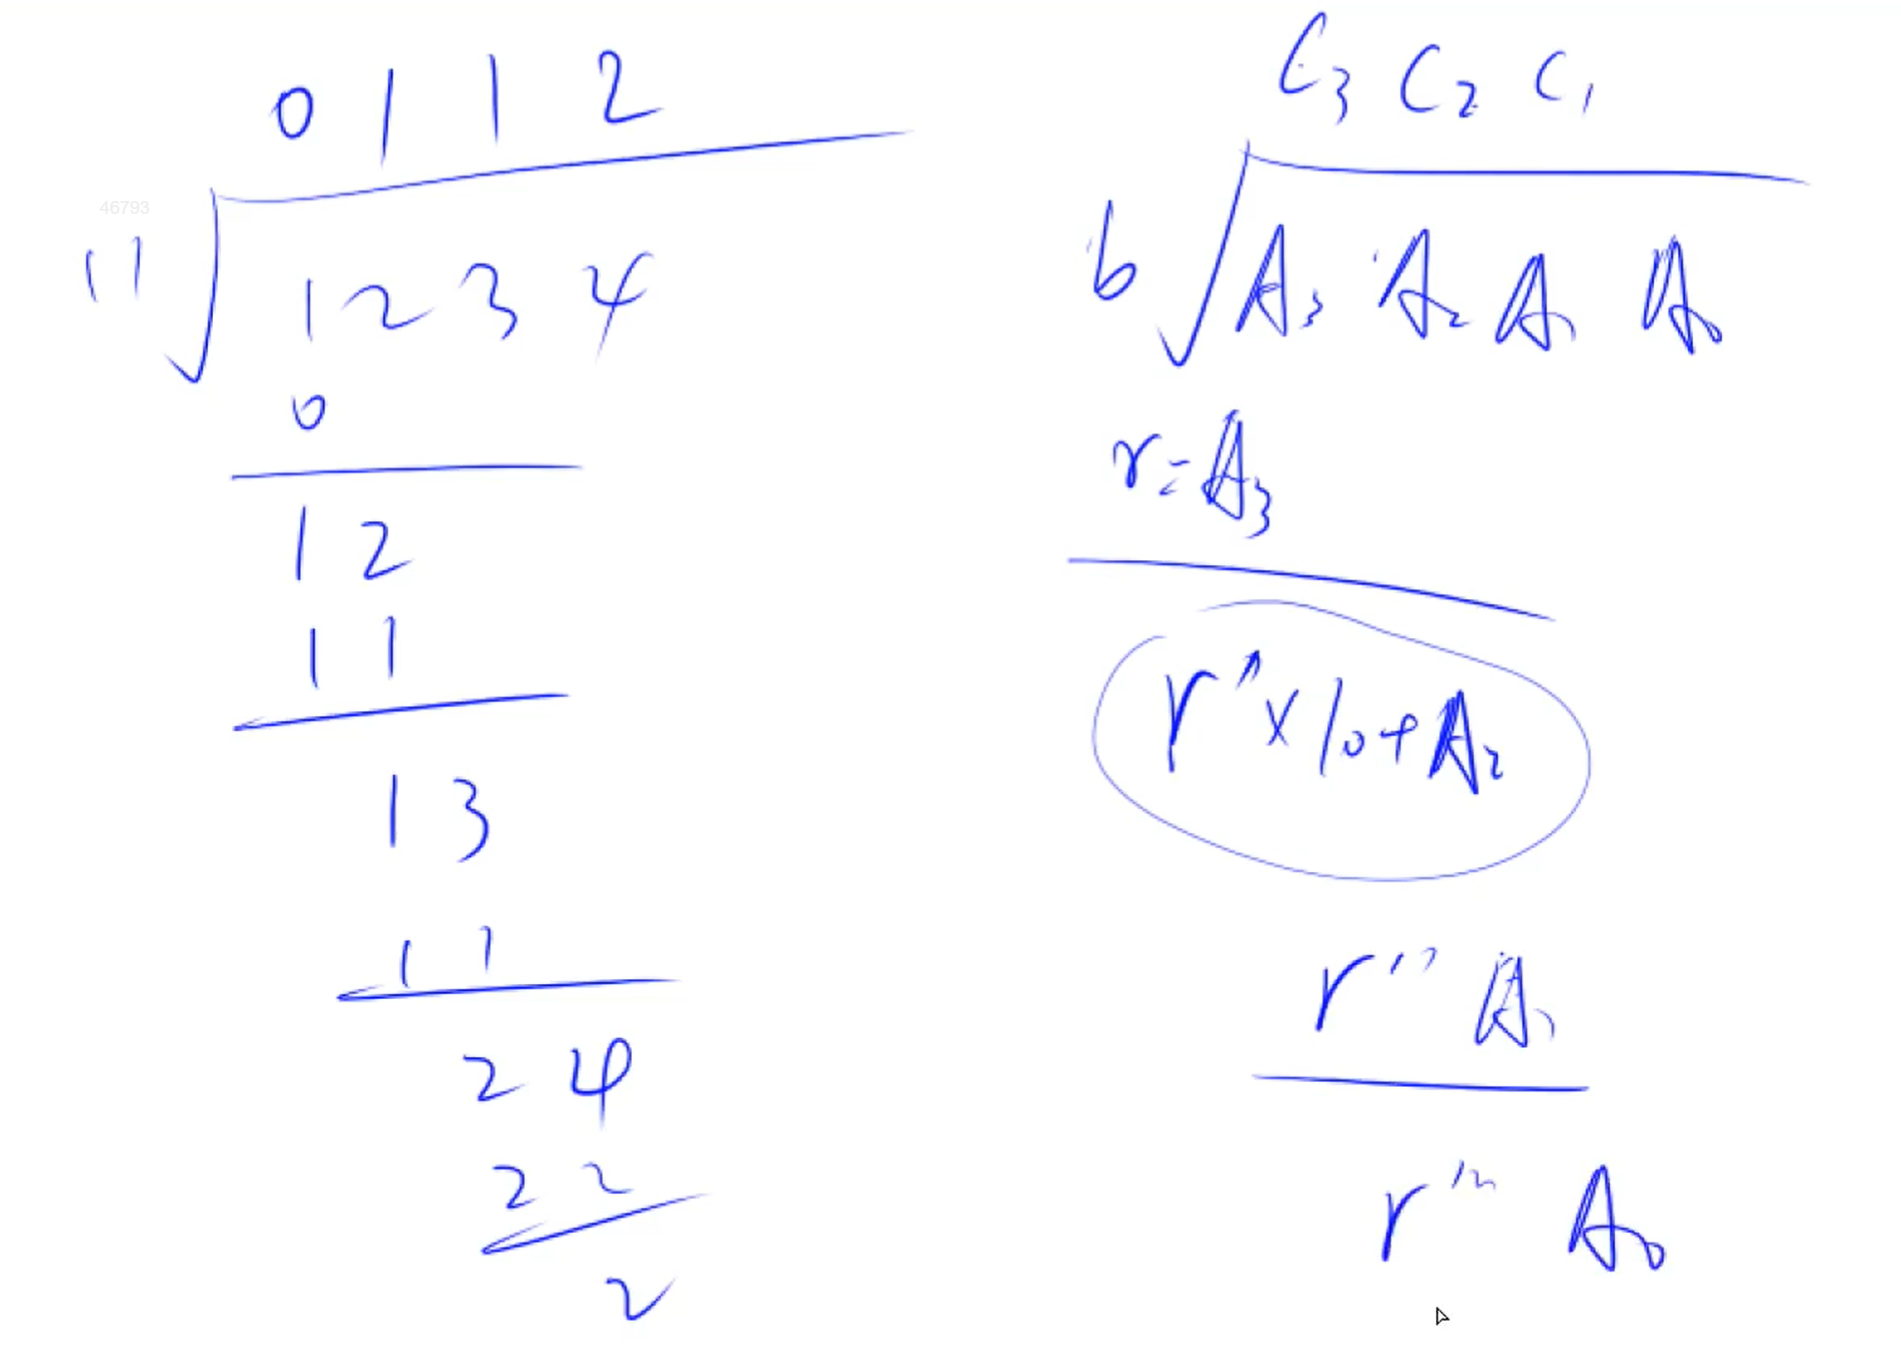 0 1 1 2
11 1 2 3 4
0
1 2
1 1
1 3
1 1
2 4
2 2
2
C3 C2 C1
b A3 A2 A1 A0
r = A3
r' x 10 + A2
r'' A1
r''' A0
46793